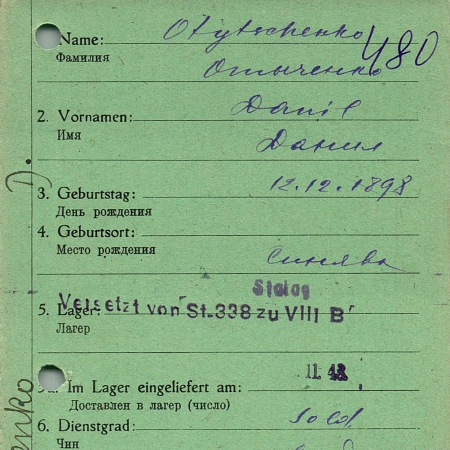 Name: Otytschenko
Фамилия Отыченко
480
2. Vornamen: Danil
Имя Данил
3. Geburtstag: 12.12.1898
День рождения
4. Geburtsort:
Место рождения Синява
Stalag
5. Lager: Versetzt von St.338 zu VIII B
Лагерь
Im Lager eingeliefert am: 11. 42
Доставлен в лагерь (число)
6. Dienstgrad: Sold.
Чин